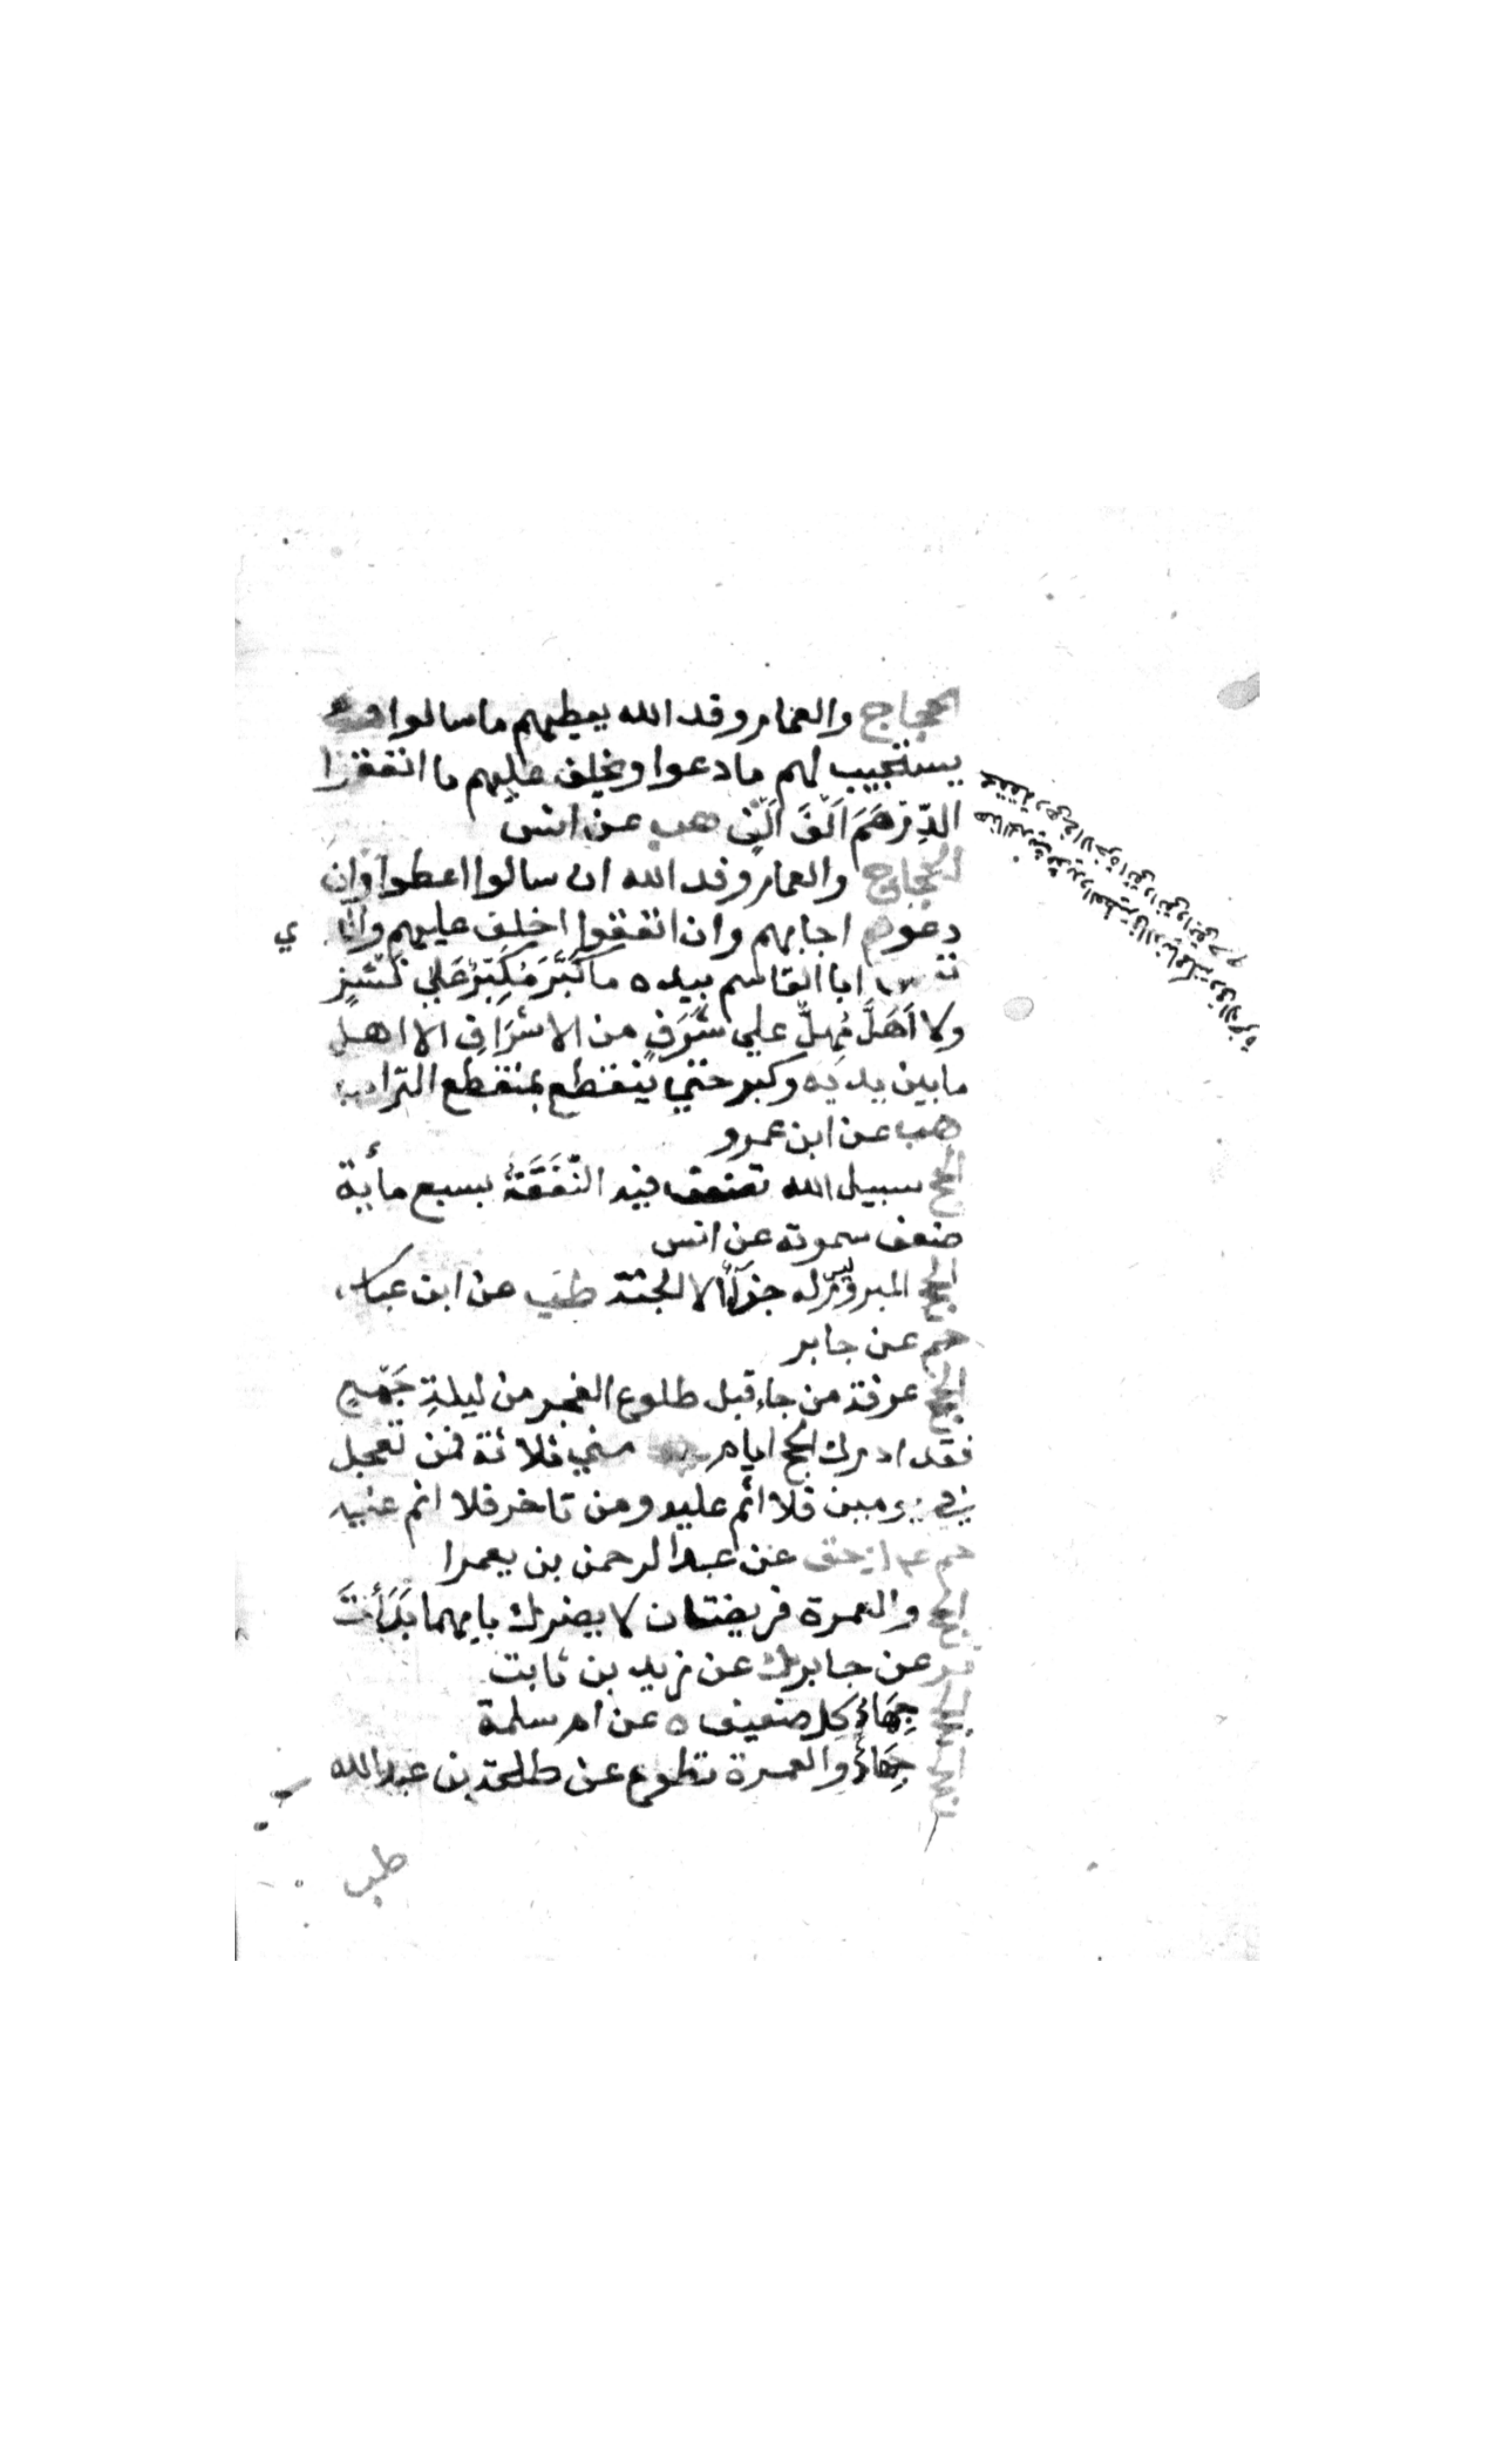 الحجاج والعمار وفد الله يعطيهم ما سالوا و
يستجيب لهم ما دعوا ويخلف عليهم ما انفقوا
الدِّرْهَمَ اَلْفَ اَلْفٍ هب عن انس
الحجاج والعمار وفد الله ان سالوا اعطوا وان
دعوا اجابهم وان انفقوا اخلف عليهم والذي
نفس ابا القاسم بيده ما كَبَّرَ مُكَبِّرٌ عَلَي نَشَزٍ
ولا اَهَلَّ مُهِلٌّ علي شَرَفٍ من الاشرَافِ الا اهل
ما بين يديه وكبر حتي ينقطع بمنقطع التراب
هب عن ابن عمرو
الحج سبيل الله تضعف فيه النَّفَقَةُ بسبع مأية
ضعف سمويه عن انس
الحج المبرور ليس له جزاء الا الجنة طب عن ابن عباس
حم عن جابر
الحج عرفة من جاء قبل طلوع الفجر من ليلةِ جَمْعٍ
فقد ادرك الحج ايام مني ثلاثة فمن تعجل
في يومين فلا اثم عليه ومن تاخر فلا اثم عليه
حم عن عبد الرحمن بن يعمرا
الحج والعمرة فريضتان لا يضرك بايهما بَدَأْتَ
فر عن جابر ك عن زيد بن ثابت
الحج جِهَادُ كل ضعيف ه عن ام سلمة
الحج جِهَادٌ والعمرة تطوع عن طلحة بن عبد الله
طب